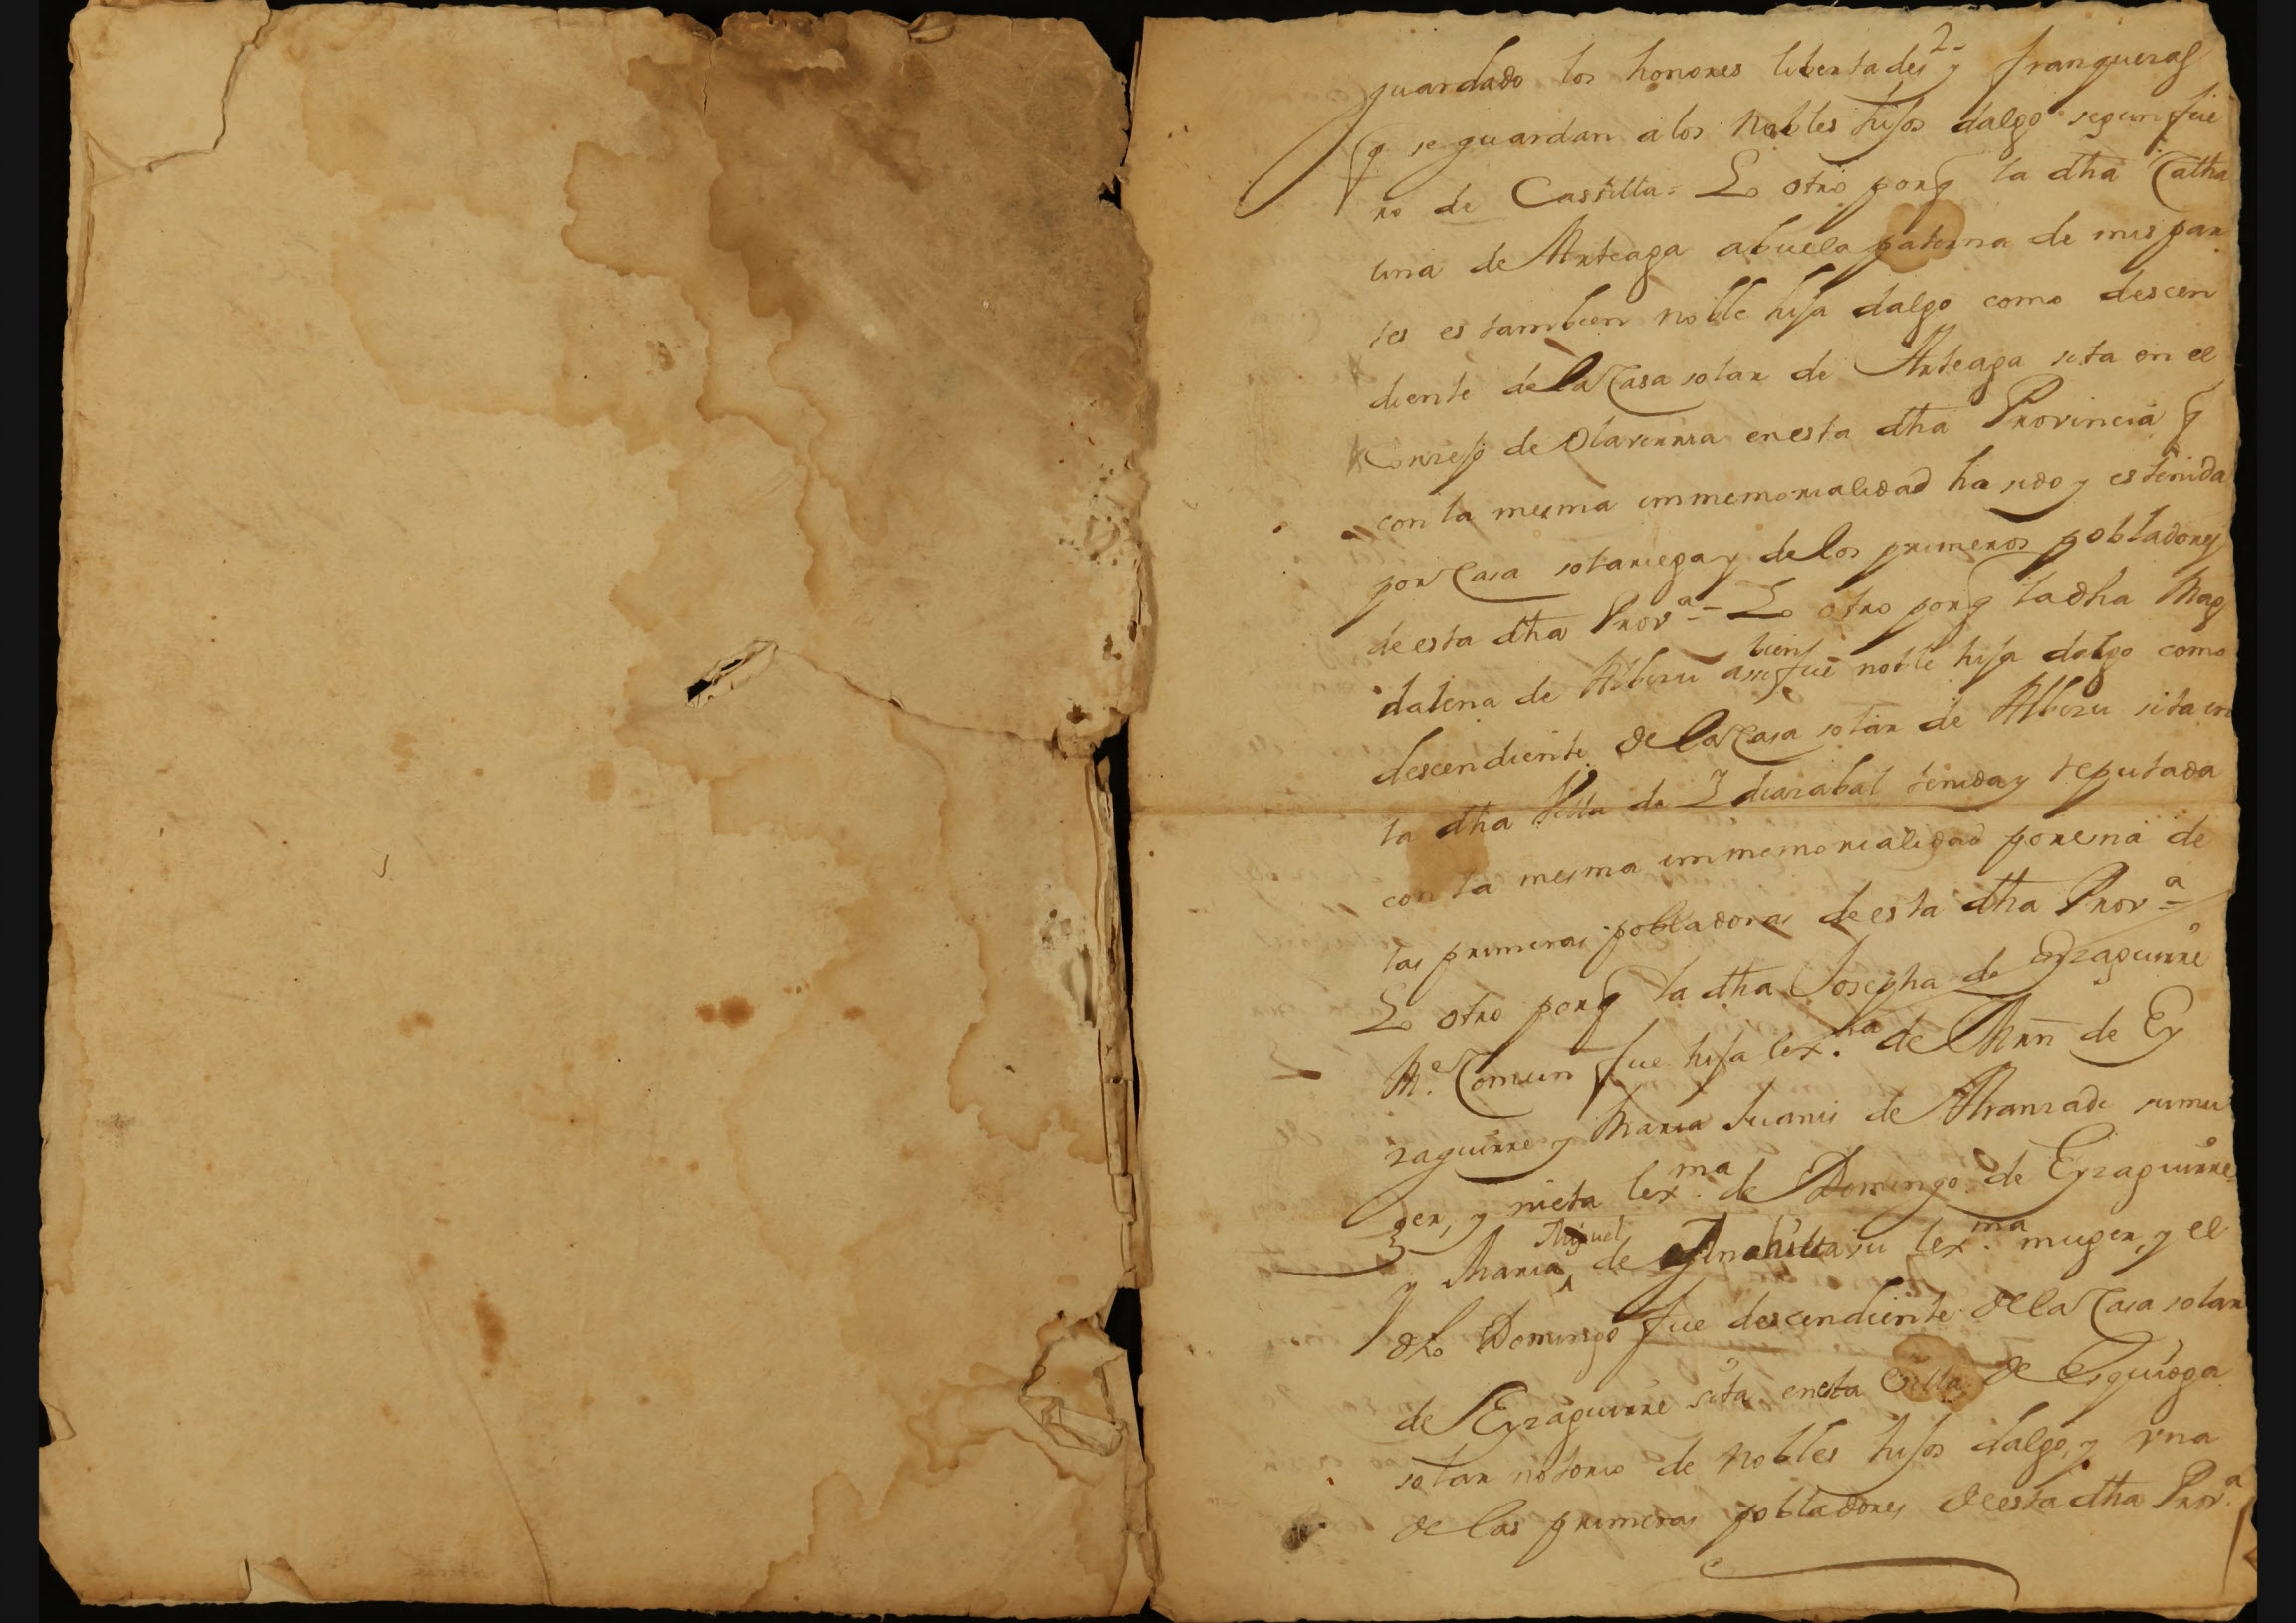 2-
guardado los honores libertades y franquezas
q se guardan a los Nobles hijos dalgo segun fue
ro de Castilla = Lo otro porq la dha Catha
lina de Arteaga abuela paterna de mis par
tes es tambien noble hija dalgo como descen
diente de la Casa solar de Arteaga sita en el
Conzejo de Olaverria en esta dha Provincia q
con la mesma immemorialidad ha sido y es tenida
por Casa solariega y de los primeros pobladores
de esta dha Provª = Lo otro porq la dha Mag
dalena de Albizu assi bien fue noble hija dalgo como
descendiente de la Casa solar de Albizu sita en
la dha Villa de Ydiazabal tenida y reputada
con la mesma immemorialidad por una de
las primeras pobladoras de esta dha Provª =
Lo otro porq la dha Josepha de Eyzaguirre
Me. Comun fue hija lex.ma de Mrn de Ey
zaguirre y Maria Juanis de Aranzadi su mu
ger, y nieta lex.ma de Domingo de Eyzaguirre
y Maria Miguel de su lex.ma muger, y el
dho Domingo fue descendiente de la Casa solar
de Eyzaguirre sita en esta Villa de Seguidga
solar notorio de nobles hijos dalgo, y vna
de las primeras pobladores de esta dha Provª